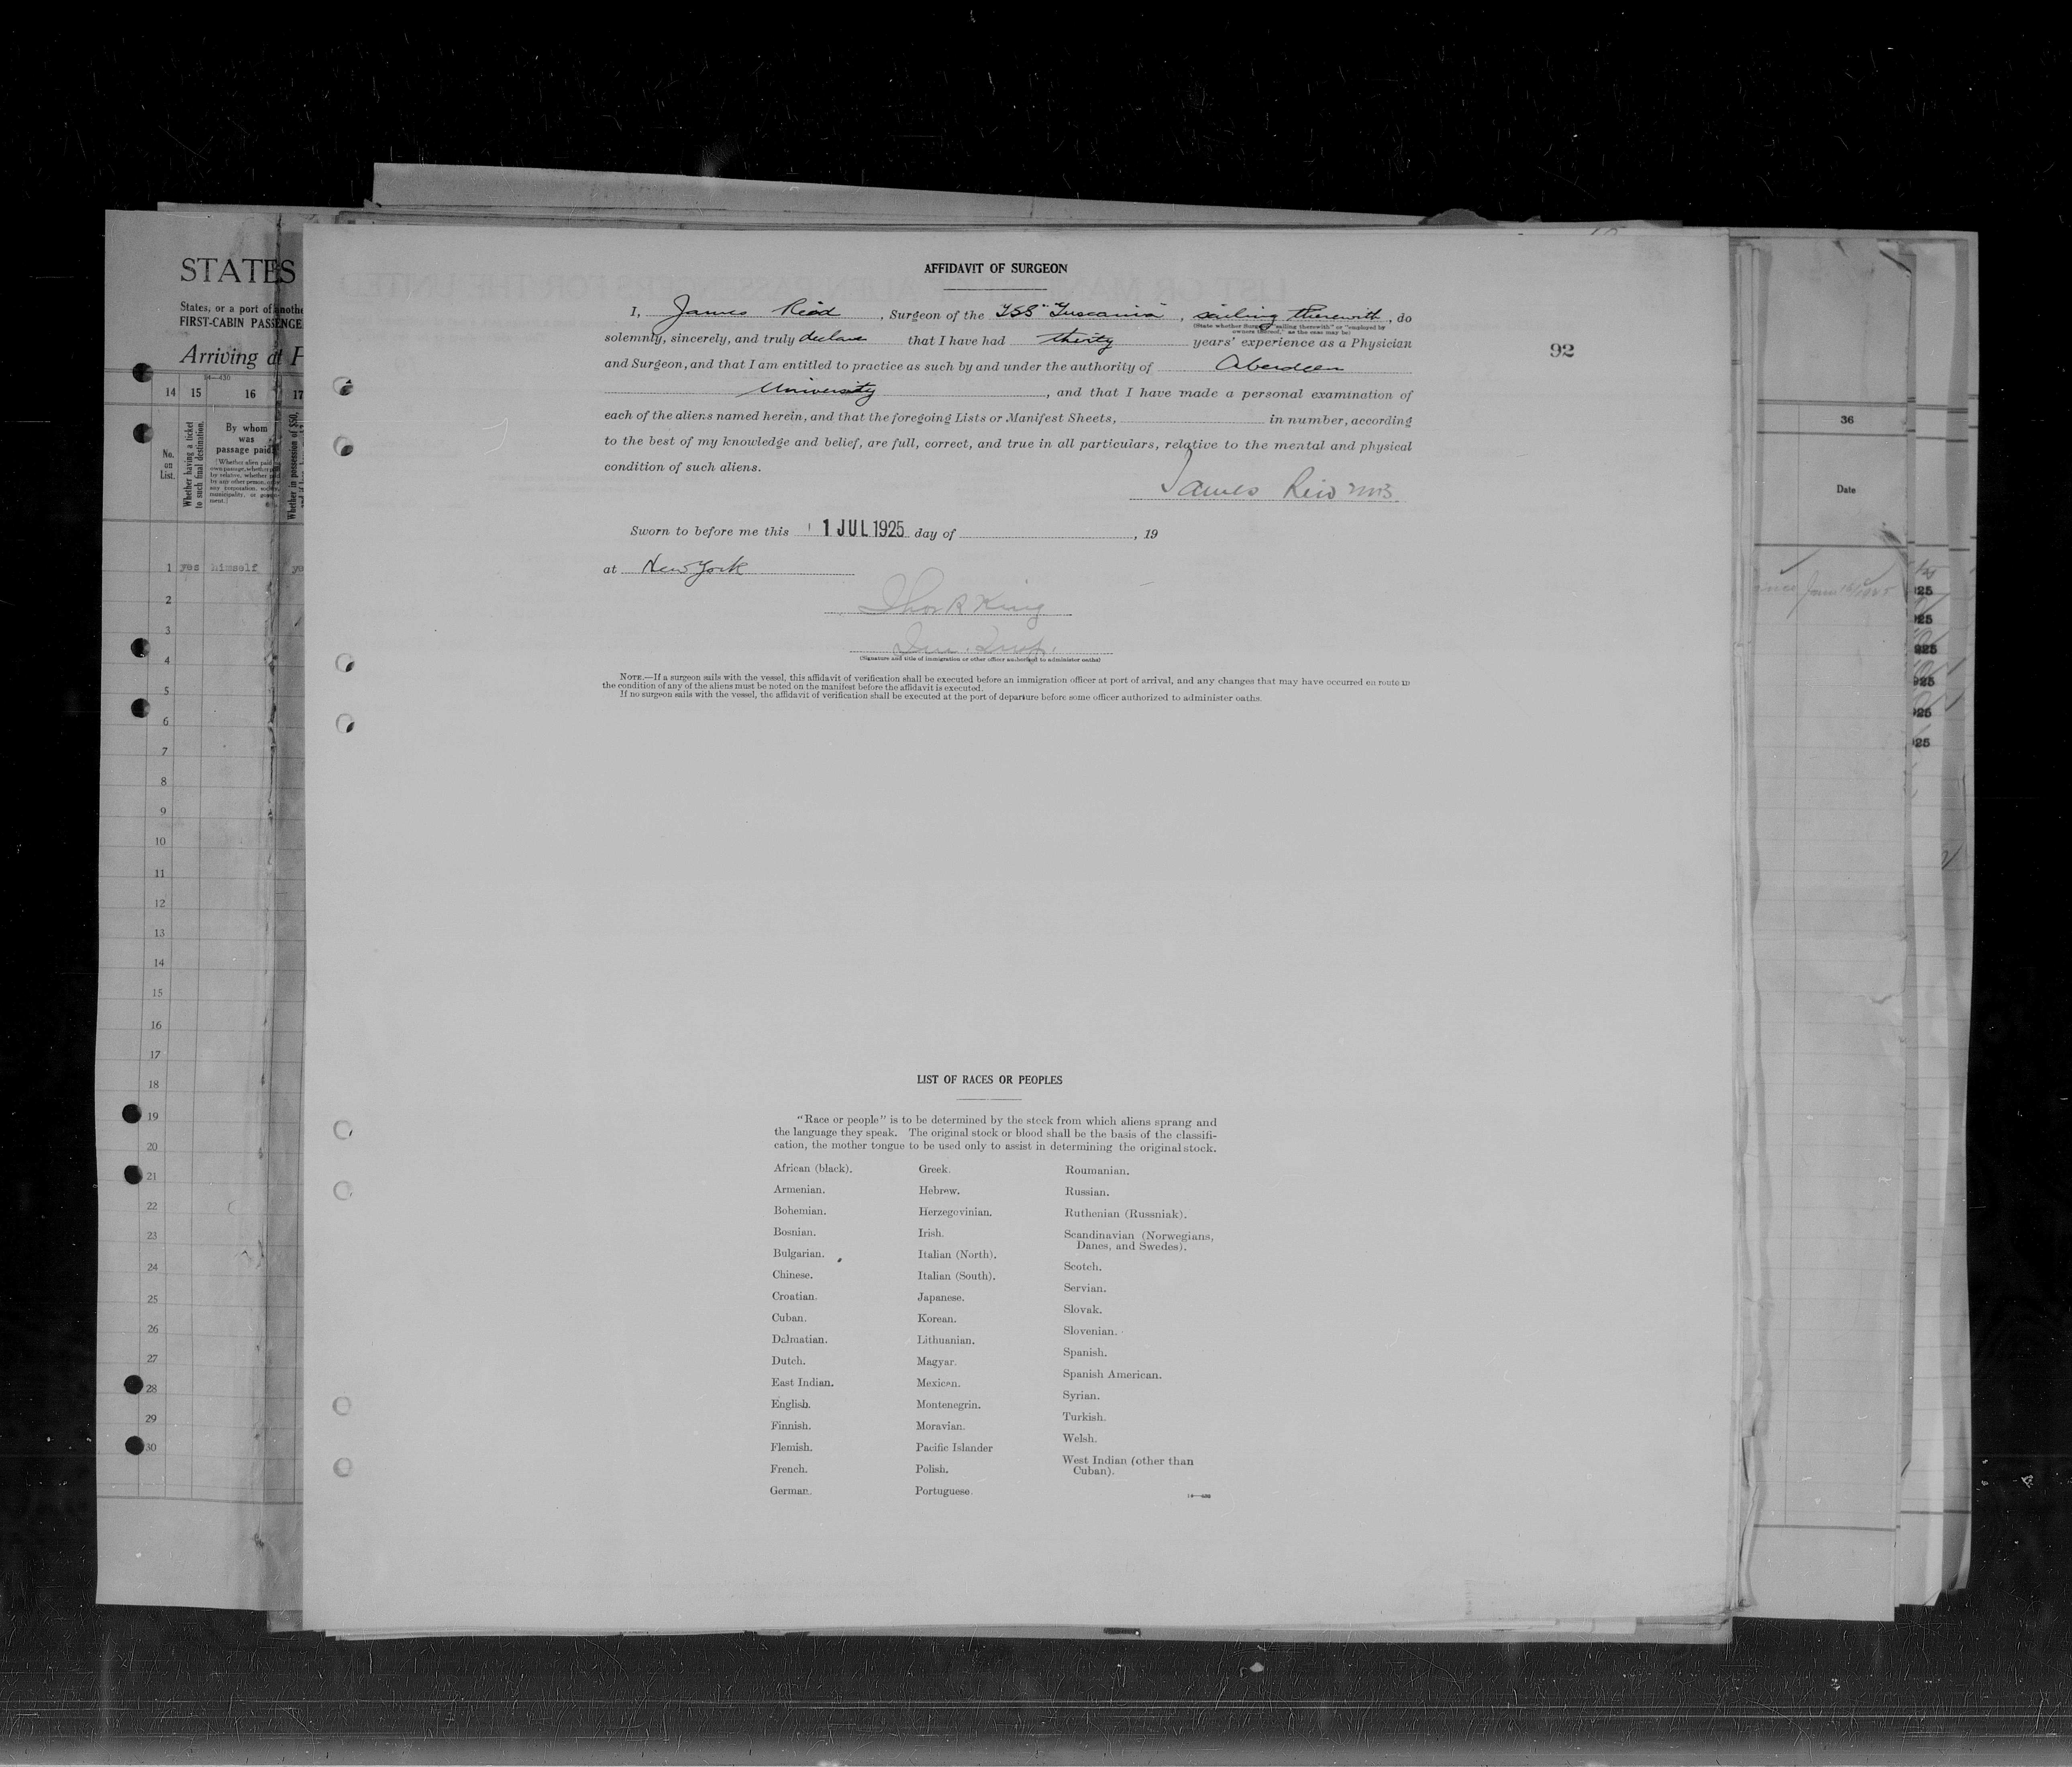 STATES
States, or a port of anothe
FIRST-CABIN PASSENGE
Arriving at P
14 15 16 17
No. on List.
Whether having a ticket to such final destination.
By whom was passage paid?
Whether in possession of $50,
1 yes himself ye
2
3
4
5
6
7
8
9
10
11
12
13
14
15
16
17
18
19
20
21
22
23
24
25
26
27
28
29
30
AFFIDAVIT OF SURGEON
92
I, James Reid, Surgeon of the TSS "Tuscania", sailing therewith, do
(State whether Surgeon "sailing therewith" or "employed by
owners thereof," as the case may be)
solemnly, sincerely, and truly declare that I have had thirty years' experience as a Physician
and Surgeon, and that I am entitled to practice as such by and under the authority of Aberdeen
University, and that I have made a personal examination of
each of the aliens named herein, and that the foregoing Lists or Manifest Sheets, in number, according
to the best of my knowledge and belief, are full, correct, and true in all particulars, relative to the mental and physical
condition of such aliens.
James Reid MB
Sworn to before me this 1 JUL 1925 day of , 19
at New York
Thos R King
Imm. Insp.
(Signature and title of immigration or other officer authorized to administer oaths)
NOTE.—If a surgeon sails with the vessel, this affidavit of verification shall be executed before an immigration officer at port of arrival, and any changes that may have occurred en route in
the condition of any of the aliens must be noted on the manifest before the affidavit is executed.
If no surgeon sails with the vessel, the affidavit of verification shall be executed at the port of departure before some officer authorized to administer oaths.
LIST OF RACES OR PEOPLES
"Race or people" is to be determined by the stock from which aliens sprang and
the language they speak. The original stock or blood shall be the basis of the classifi-
cation, the mother tongue to be used only to assist in determining the original stock.
African (black).
Armenian.
Bohemian.
Bosnian.
Bulgarian.
Chinese.
Croatian.
Cuban.
Dalmatian.
Dutch.
East Indian.
English.
Finnish.
Flemish.
French.
German.
Greek.
Hebrew.
Herzegovinian.
Irish.
Italian (North).
Italian (South).
Japanese.
Korean.
Lithuanian.
Magyar.
Mexican.
Montenegrin.
Moravian.
Pacific Islander
Polish.
Portuguese.
Roumanian.
Russian.
Ruthenian (Russniak).
Scandinavian (Norwegians,
Danes, and Swedes).
Scotch.
Servian.
Slovak.
Slovenian.
Spanish.
Spanish American.
Syrian.
Turkish.
Welsh.
West Indian (other than
Cuban).
36
Date
25
25
925
925
925
25